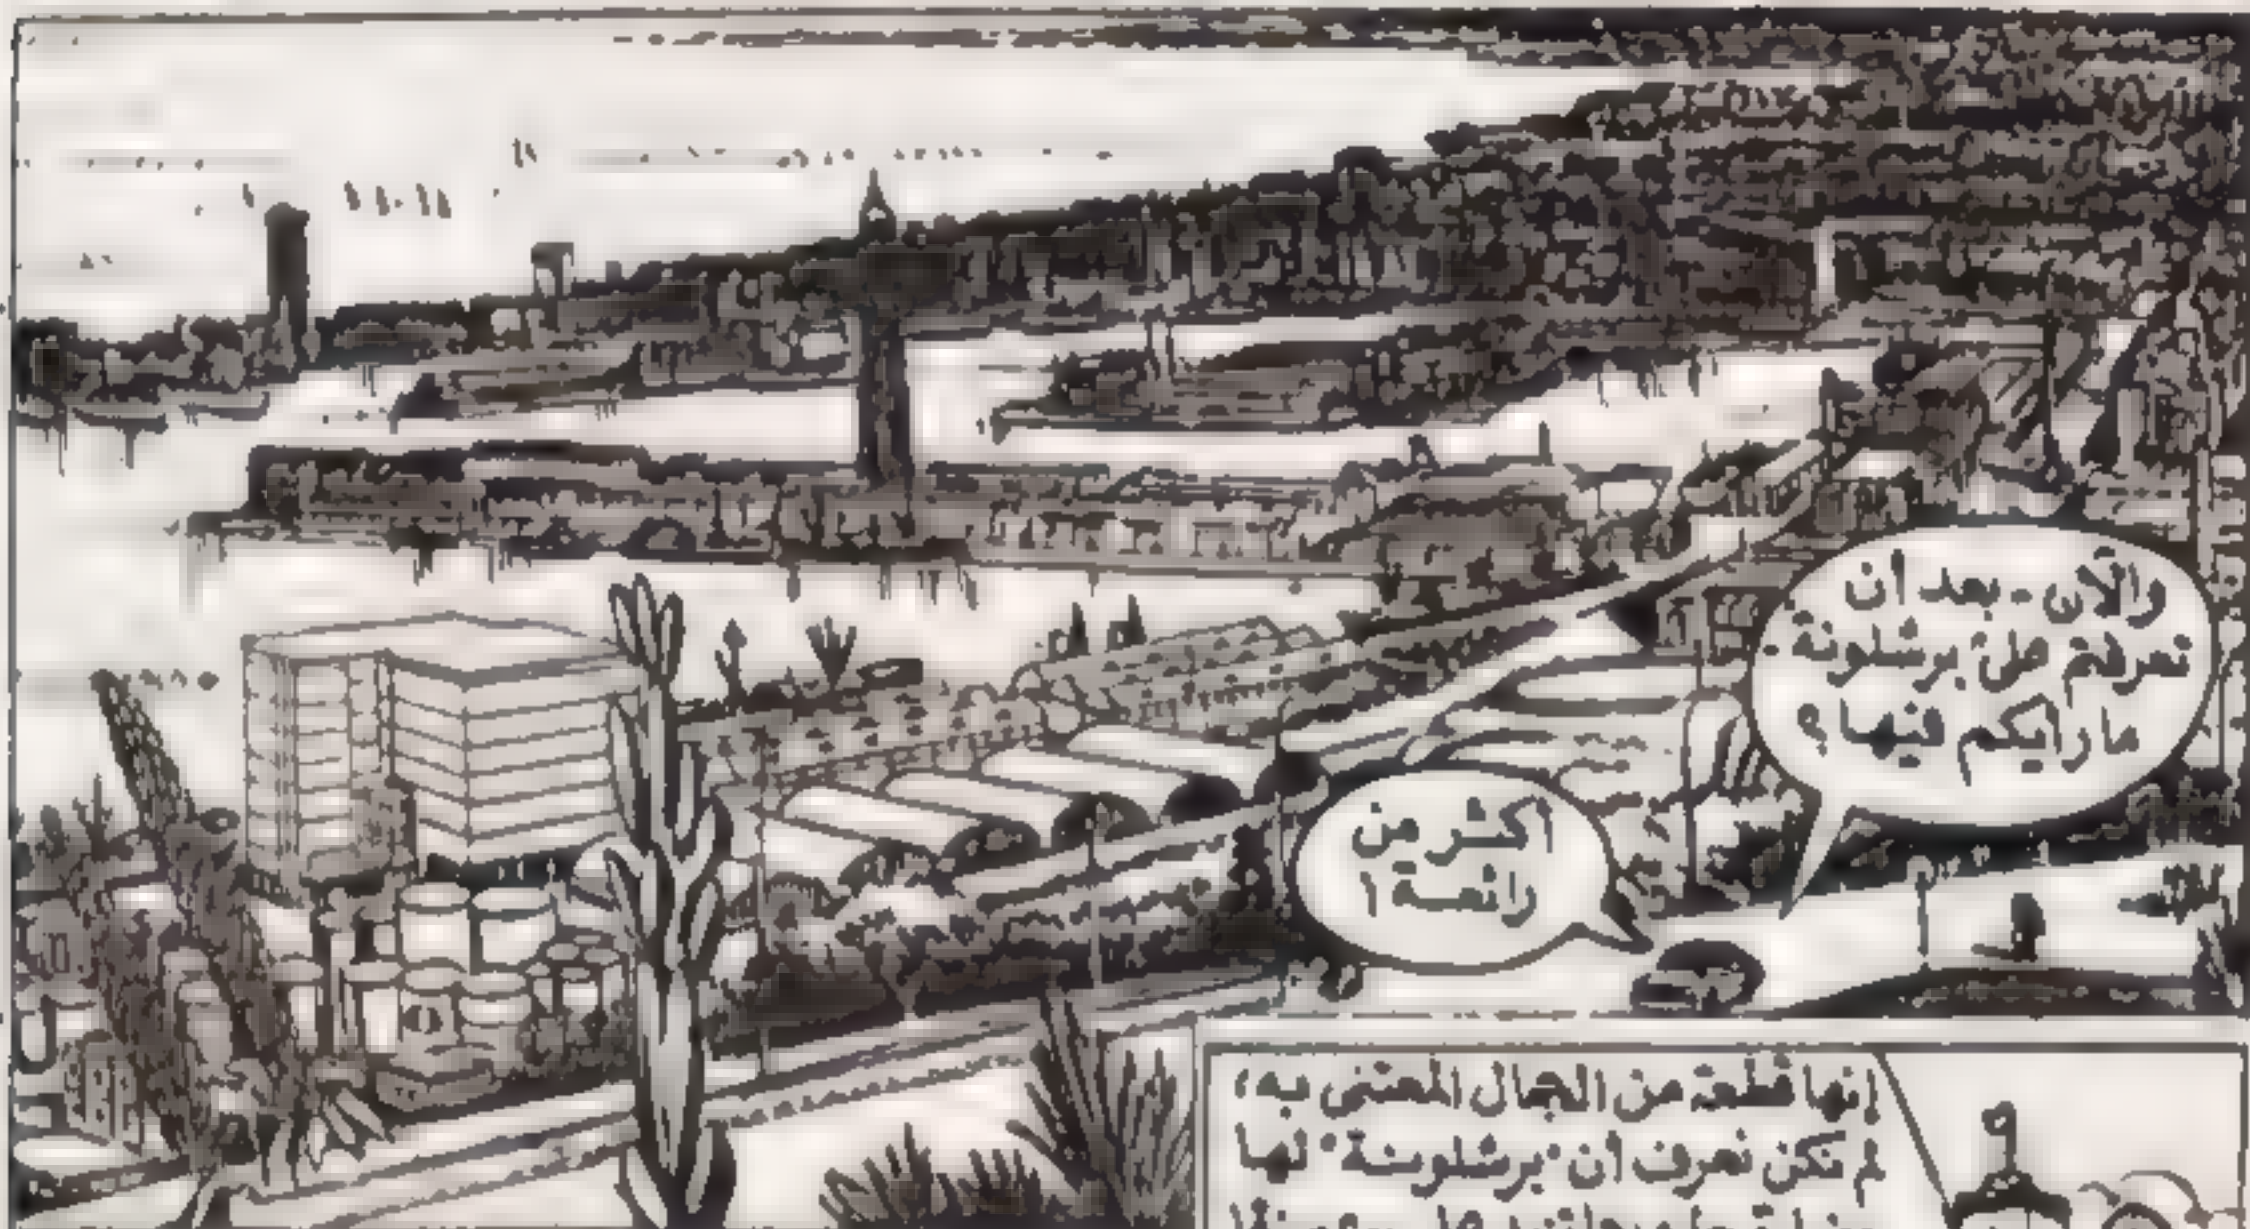 والآن - بعد أن
تعرفتم على برشلونة -
ما رأيكم فيها ؟
أكثر من
رائعة !
إنها قطعة من الجمال المعتنى به ،
لم نكن نعرف أن "برشلونة" لها